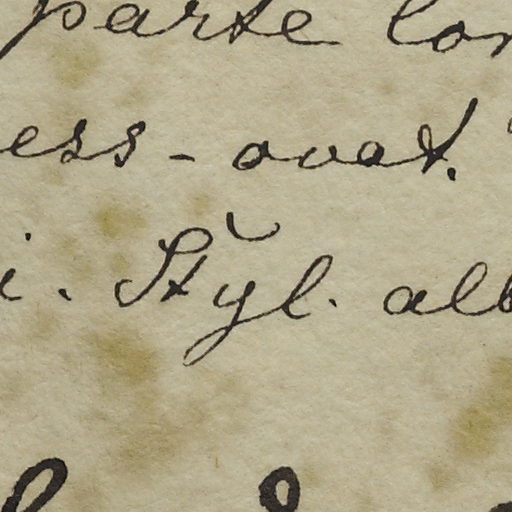 parte lon
ess-ovat.
i. Styl. alb